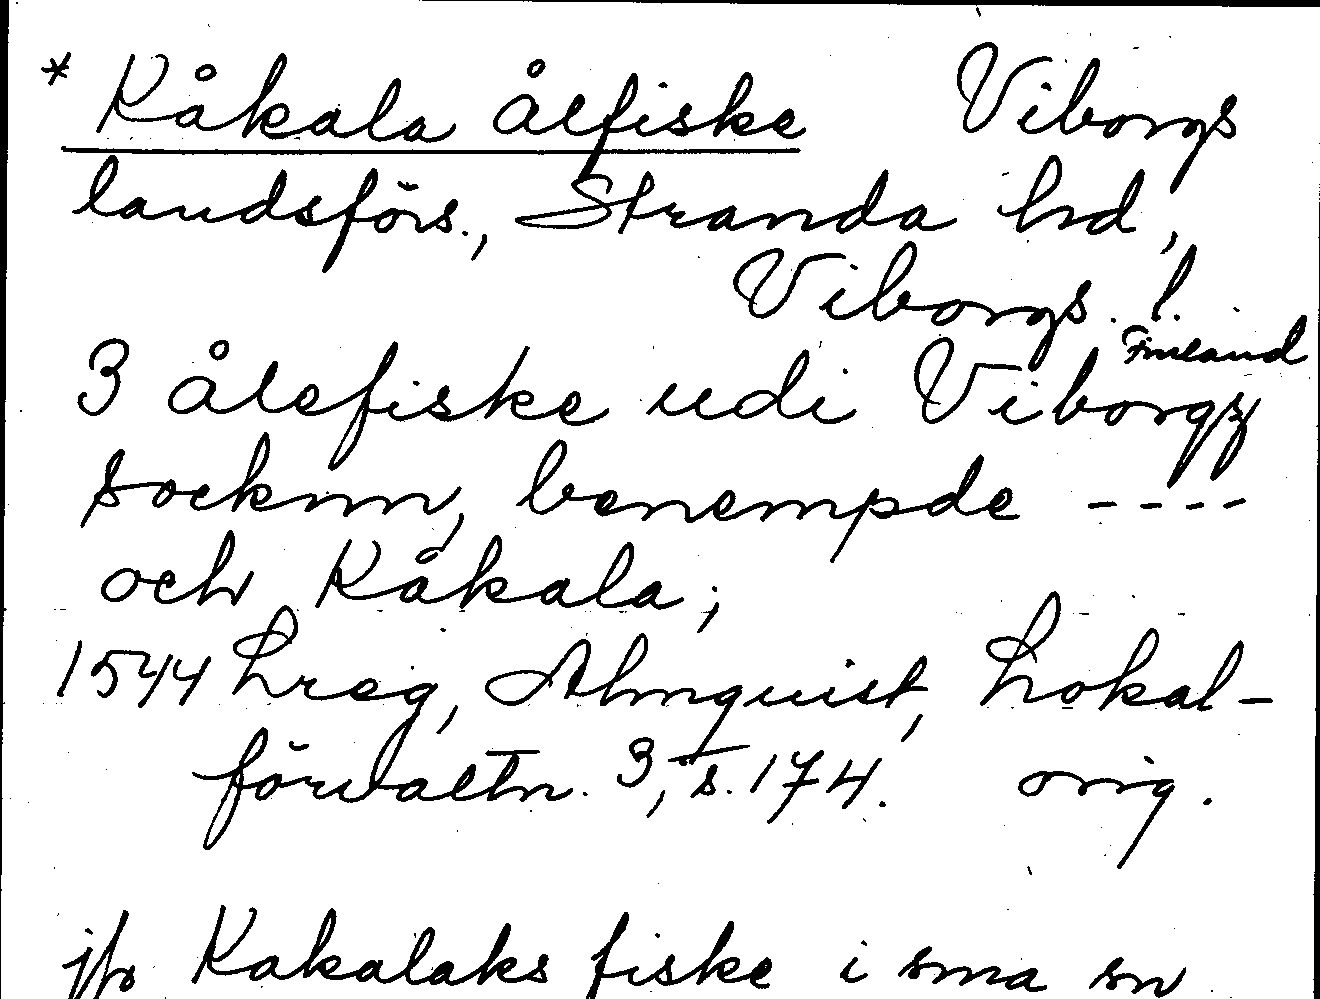 * Kåkala ålfiske Viborgs
landsförs., Stranda hd,
Viborgs l.
Finland
3 ålefiske udi Viborgz
socknn, benempde ----
och Kåkala;
1544 Lreg, Almquist, Lokal-
förvaltn. 3, s. 174. orig.
jfr Kakalaks fiske i sma sn